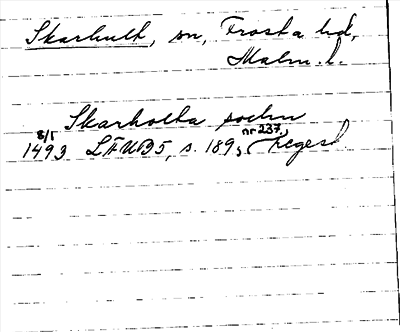 Skarhult, sn, Frosta hd,
Malm. l.
Skarholta sochn
8/5 1493 LÄUB5, s. 189, nr 237, regest